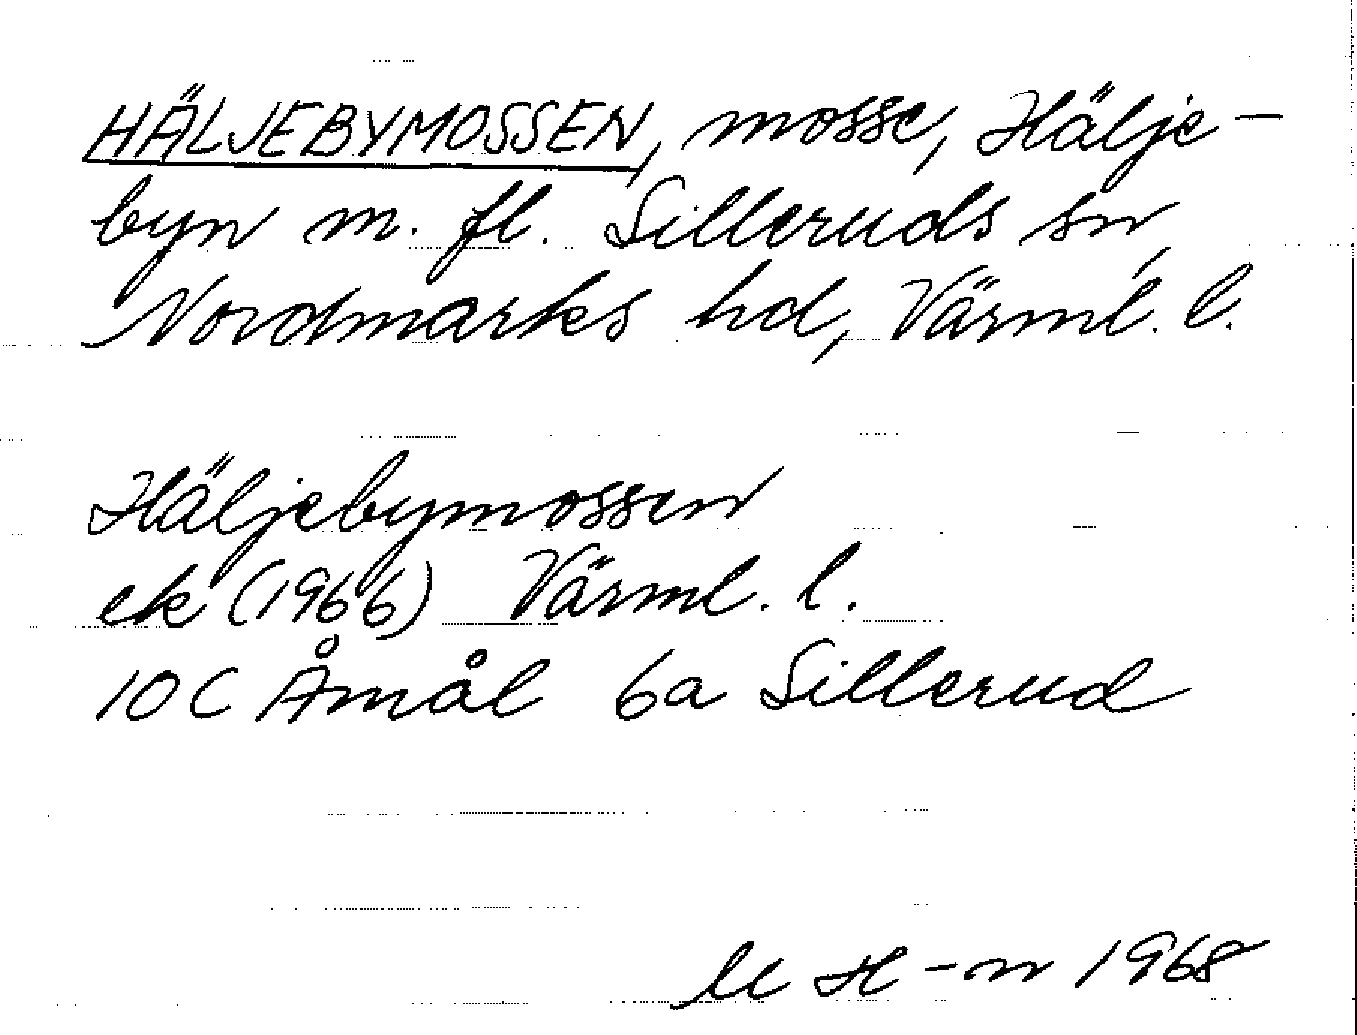 HÄLJEBYMOSSEN, mosse, Hälje-
byn m. fl. Silleruds sn,
Nordmarks hd, Värml. l.
Häljebymossen
ek (1966) Värml. l.
10C Åmål 6a Sillerud
M H-n 1968